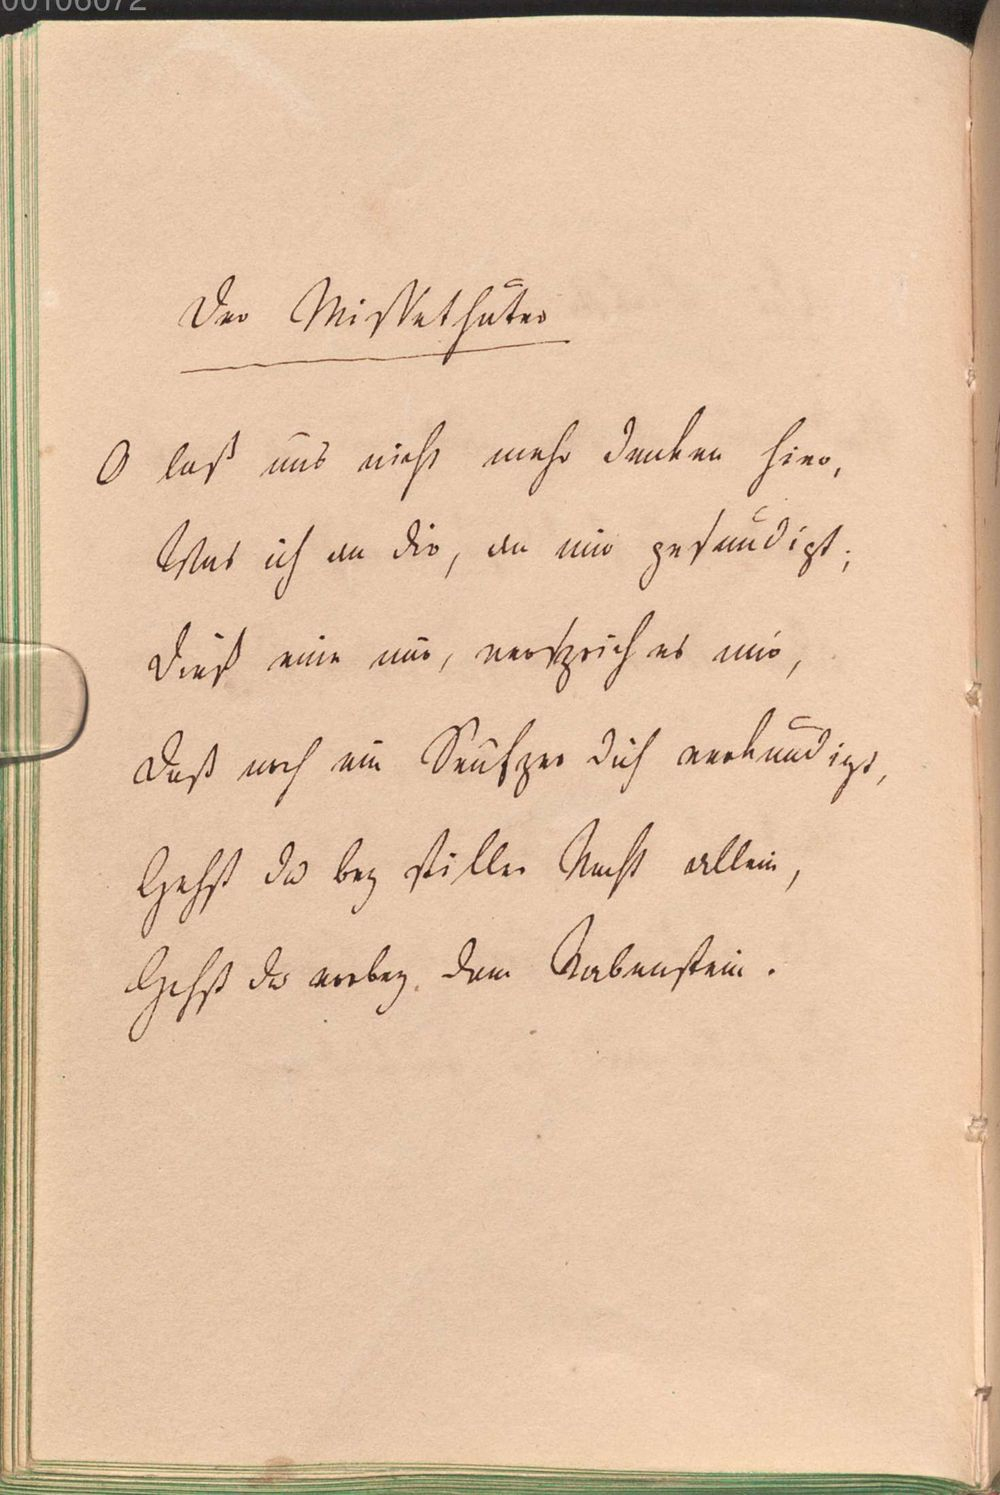 00106072
Der Missethäter
O laß uns nicht mehr denken hier,
Was ich an dir, an mir gesündigt;
Dieß eine nur, versprich es mir,
Daß noch ein Seufzer dich verkündigt,
Gehst du bey stiller Nacht allein,
Gehst du vorbey dem Rabenstein.